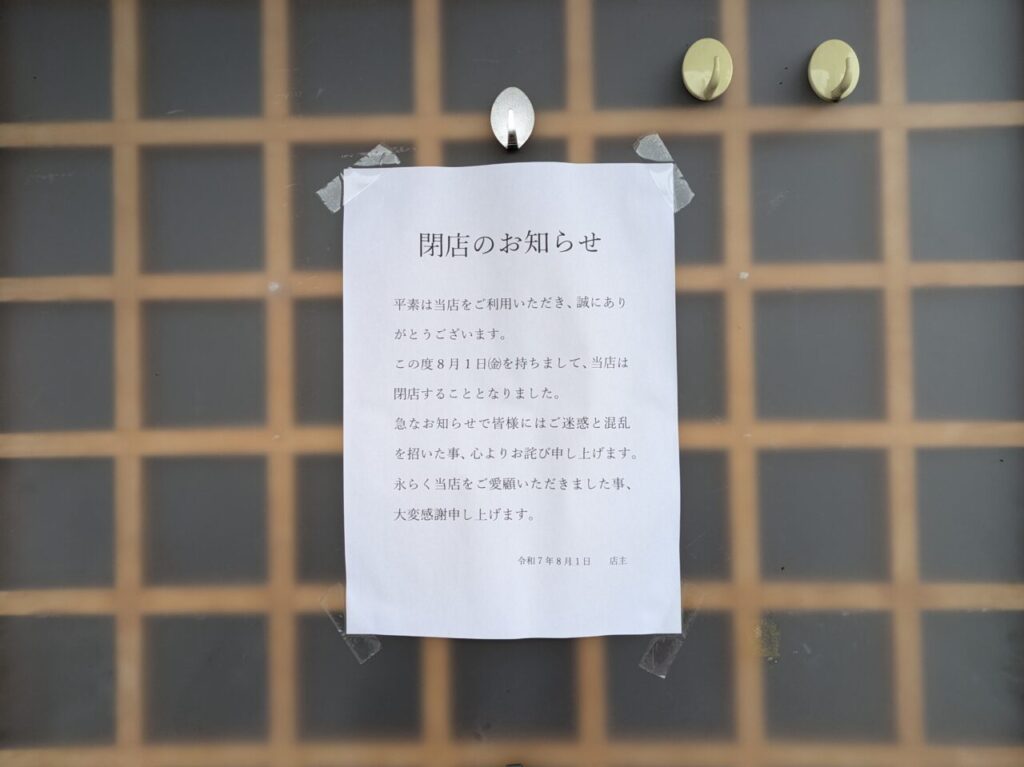 閉店のお知らせ
平素は当店をご利用いただき、誠にあり
がとうございます。
この度８月１日㈮を持ちまして、当店は
閉店することとなりました。
急なお知らせで皆様にはご迷惑と混乱
を招いた事、心よりお詫び申し上げます。
永らく当店をご愛顧いただきました事、
大変感謝申し上げます。
令和７年８月１日　店主